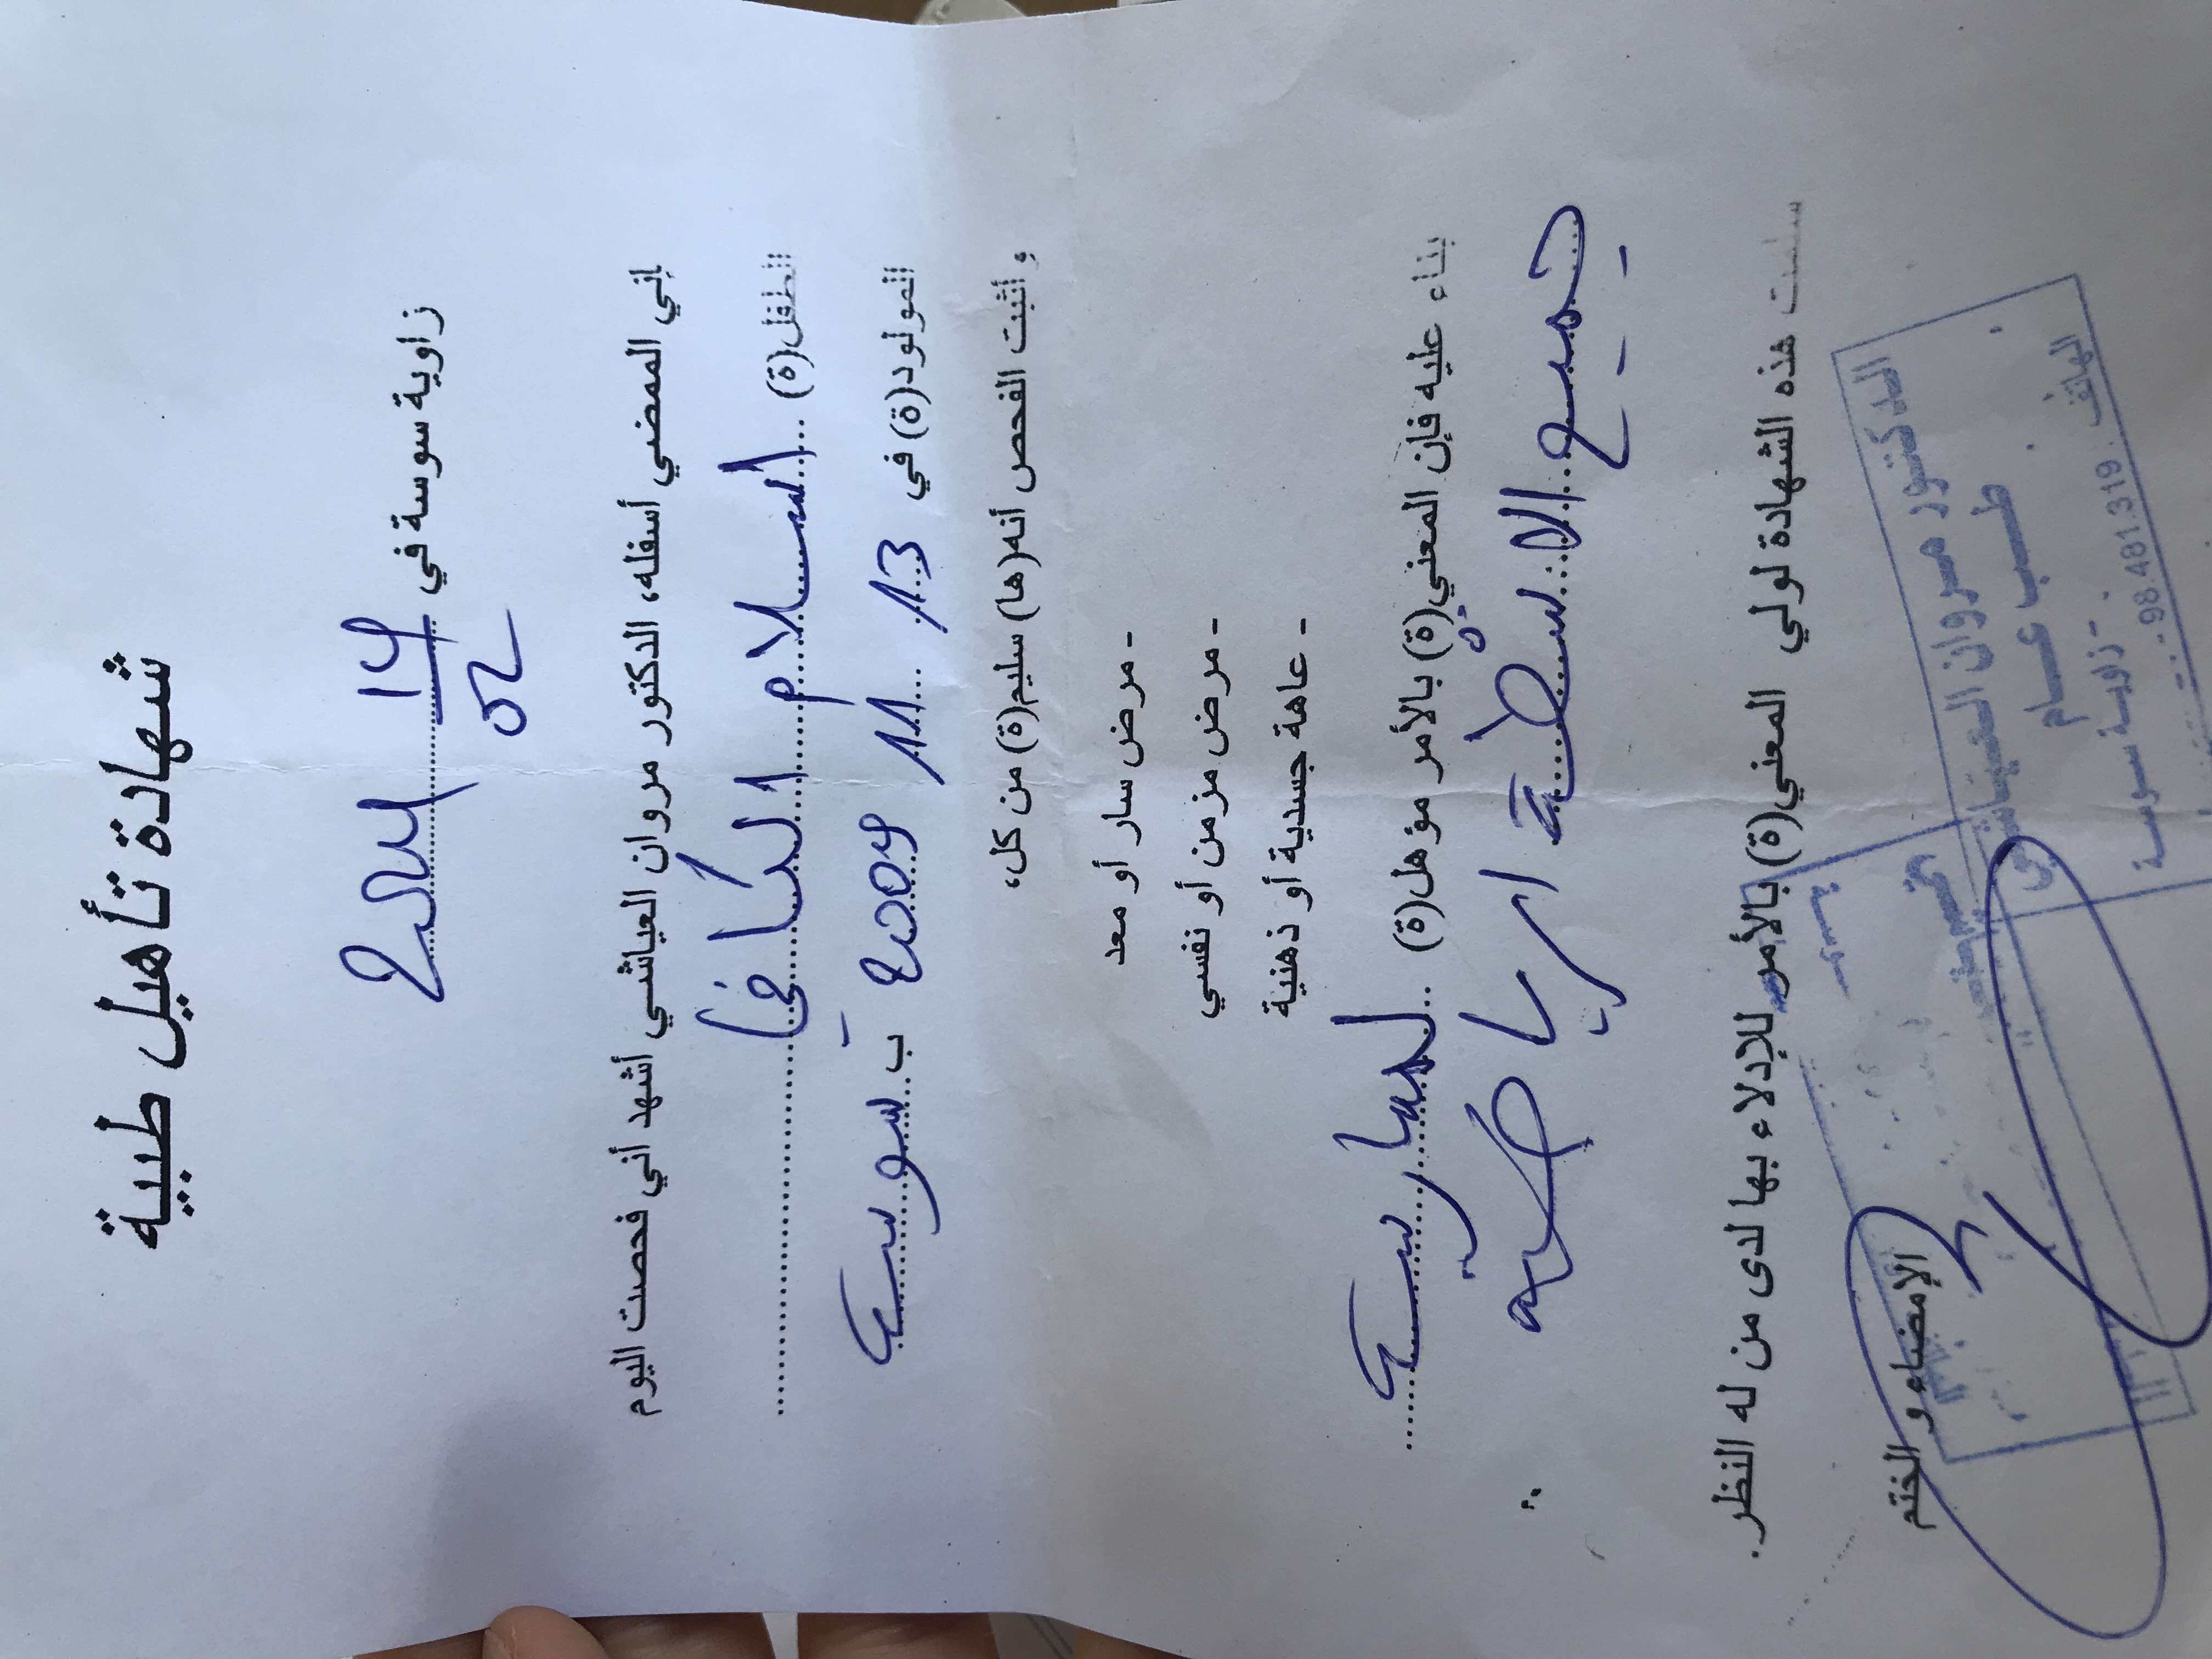 شهادة تأهيل طبية
زاوية سوسة في 14
02
إني الممضي أسفله، الدكتور مروان العياشي أشهد أني فحصت اليوم
الطفل(ة) اسلام الكافي
المولود(ة) في 13 11 2009 ب سوسة
و أثبت الفحص أنه(ها) سليم(ة) من كل،
- مرض سار أو معد
- مرض مزمن أو نفسي
- عاهة جسدية أو ذهنية
بناء عليه فإن المعني(ة) بالأمر مؤهل(ة) لممارسة
جميع الانشطة الرياضية
سلمت هذه الشهادة لولي المعني(ة) بالأمر للإدلاء بها لدى من له النظر.
الإمضاء و الختم
الدكتور مروان العياشي
طب عام
زاوية سوسة
الهاتف : 98.481.319